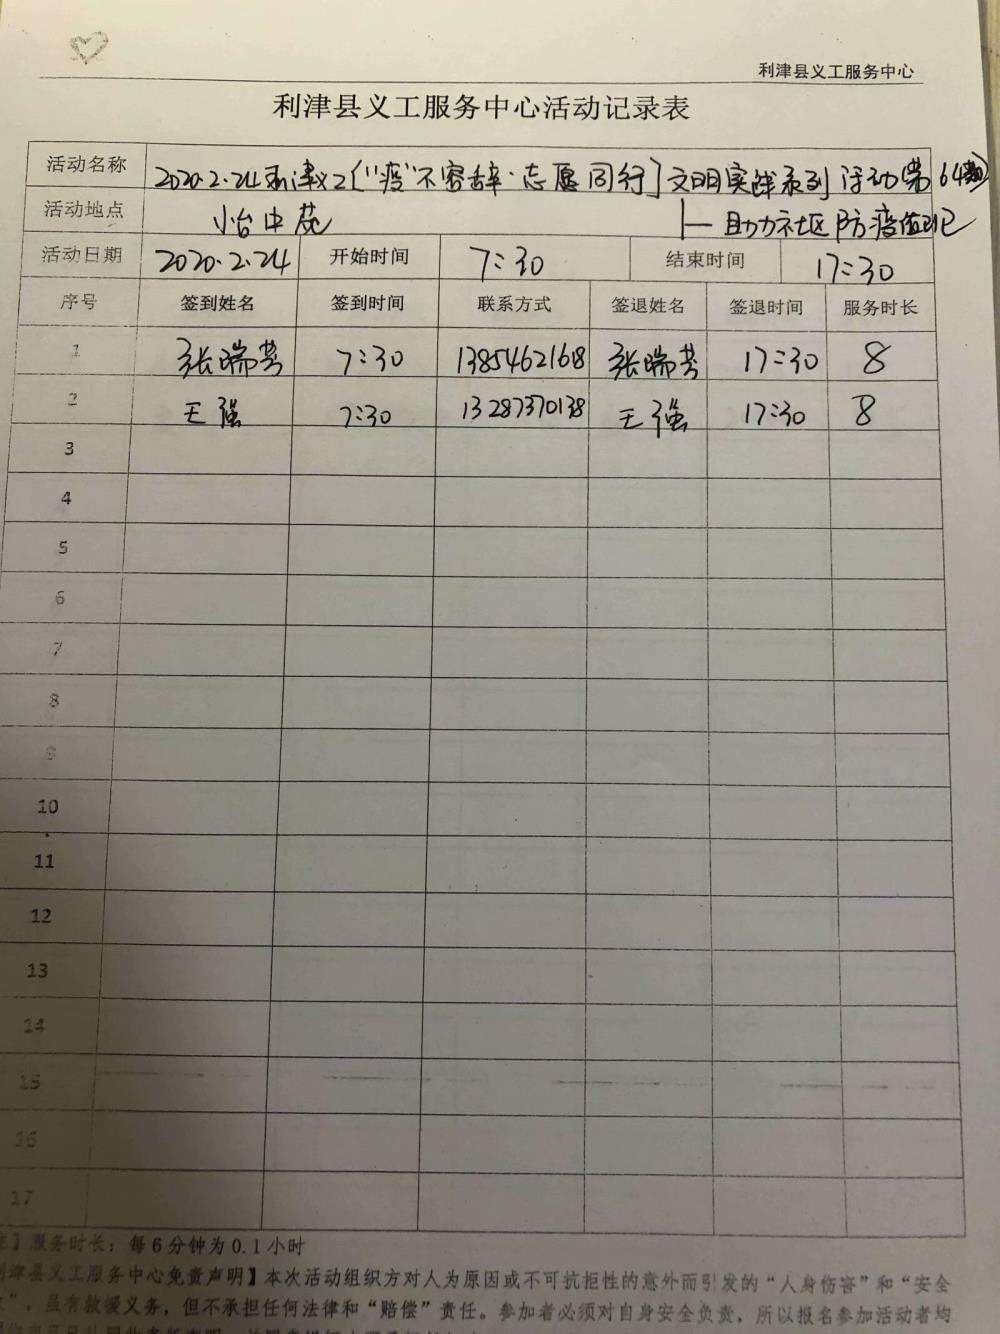 利津县义工服务中心
利津县义工服务中心活动记录表
活动名称 2020.2.24利津义工["疫"不容辞·志愿同行]文明实践系列活动(第64期)
——助力社区防疫值班
活动地点
活动日期 2020.2.24 开始时间 7:30 结束时间 17:30
序号 签到姓名 签到时间 联系方式 签退姓名 签退时间 服务时长
1 张瑞芳 7:30 13854621618 张瑞芳 17:30 8
2 王强 7:30 13287370138 王强 17:30 8
3
4
5
6
7
8
9
10
11
12
13
14
15
16
17
】服务时长：每6分钟为0.1小时
利津县义工服务中心免责声明】本次活动组织方对人为原因或不可抗拒性的意外而引发的“人身伤害”和“安全
”，虽有救援义务，但不承担任何法律和“赔偿”责任。参加者必须对自身安全负责，所以报名参加活动者均